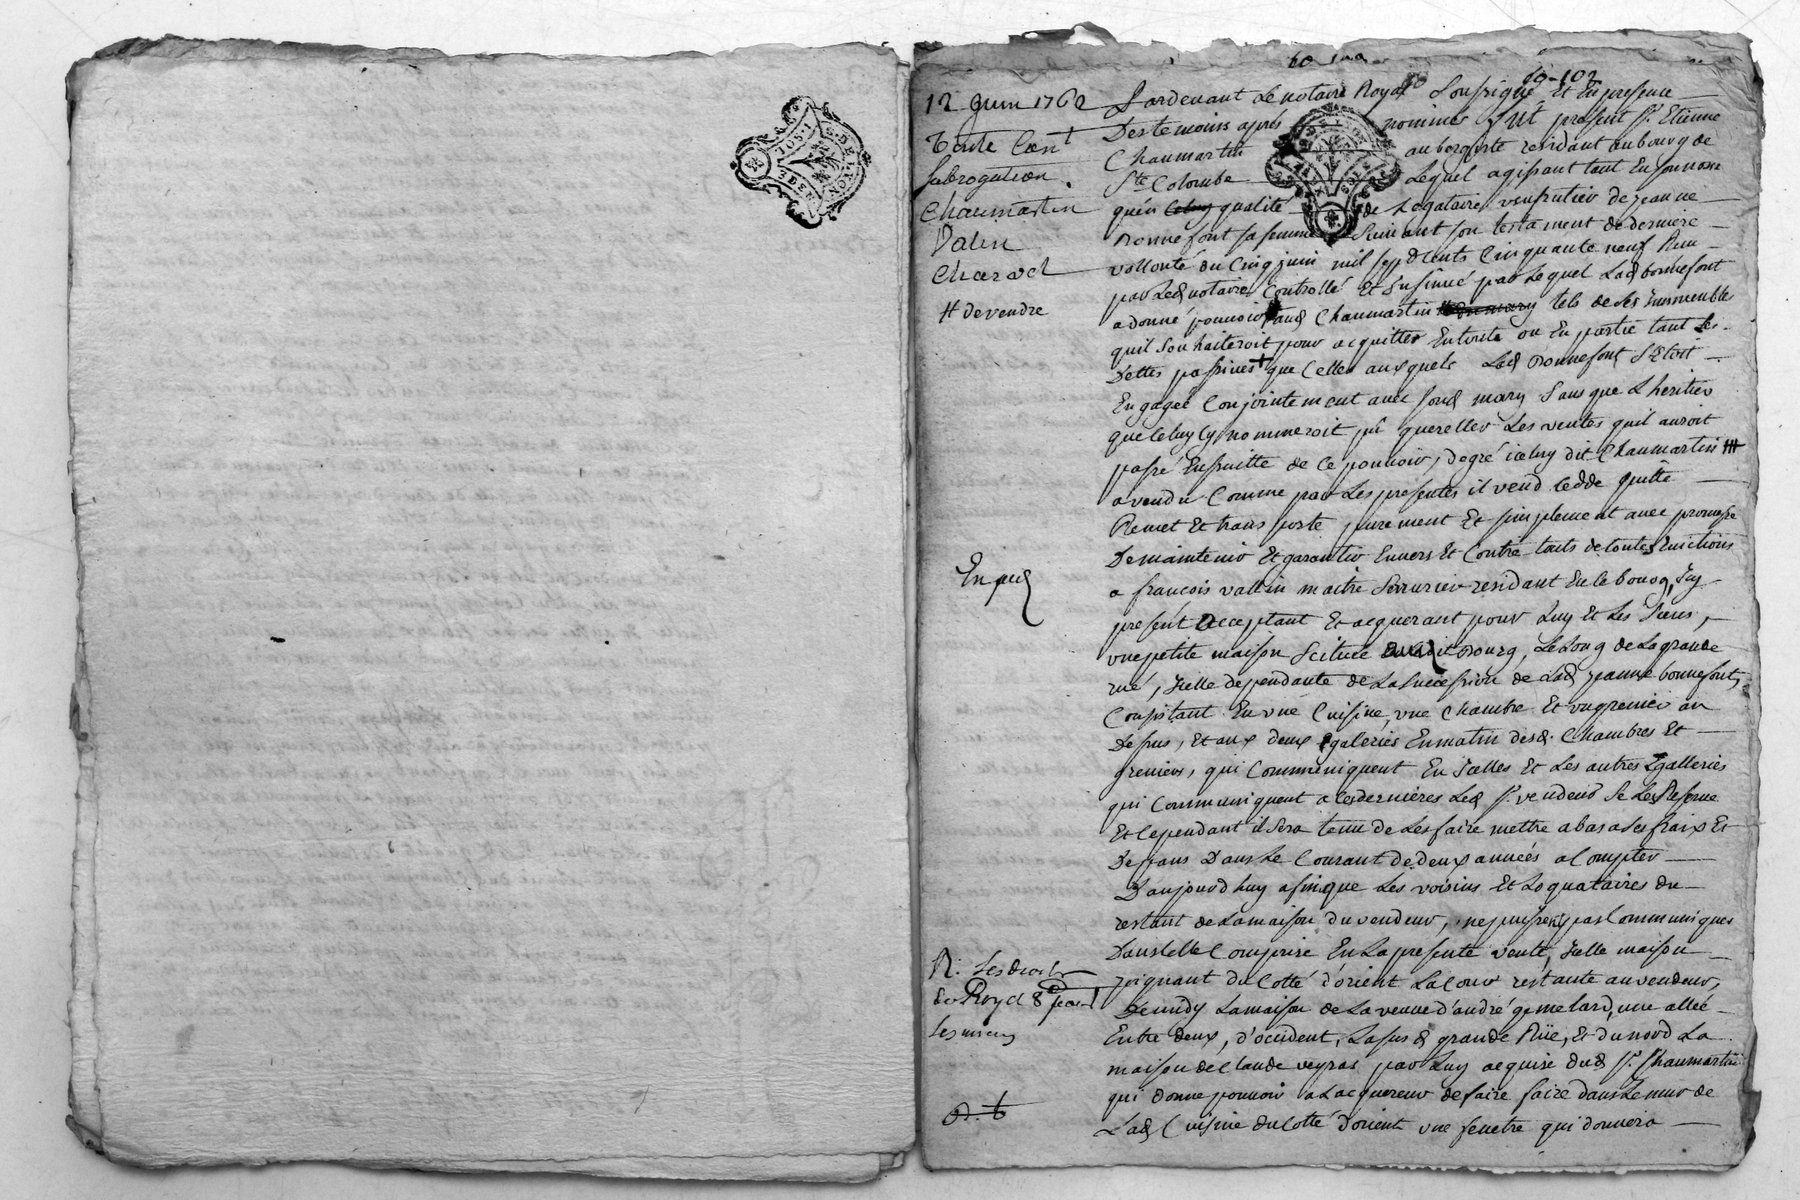 12 Juin 1762
Vente Cont
Subrogation
Chaumartin
Valin
Charvet
# de vendre
Pardevant Le notaire Royal Soussigné Et En presence
Des temoins après nommés fut present Sr. Etienne
Chaumartin aubergiste residant au bourg de
Ste Colombe Lequel agissant tant En son nom
qu'en qualité de Legataire usufrutier de jeanne
Bonnefont sa femme Suivant son testament de derniere
vollonté du Cinq juin mil sept Cents Cinquante neuf Reçu
par Led notaire Controllé Et Insinué par Lequel Lad bonnefont
a donné pouvoir aud Chaumartin # tels de ses Immeubles
quil Souhaiteroit pour acquitter En toute ou En partie tant Les
Dettes passives + que Celles auxquels Lad Bonnefont S'Etoit
Engagée Conjointement avec sond mary Sans que L'heritier
que Celuy Cy nommeroit put quereller Les ventes quil auroit
passé Ensuitte de Ce pouvoir, de gré iceluy dit Chaumartin
a vendu Comme par Les presentes il vend cedde quitte
Remet Et transporte purement Et simplement avec promesse
De maintenir Et garantir Envers Et Contre touts de toutes Evictions
a françois vallin maitre Serrurier residant En Ce bourg, Icy
present acceptant Et acquerant pour Luy Et Les Siens,
une petite maison Scituée audit Bourg, Le Long de La grande
rue, Icelle dependante de La Succession de Lad jeanne bonnefont,
Consistant En une Cuisine, une Chambre Et un grenier au
Dessus, Et aux deux galeries En matin desd. Chambres Et
greniers, qui Communiquent En Icelles Et Les autres galleries
qui Communiquent a Ces dernières Led Sr. vendeur Se Les Reserve
Et Cependant il Sera tenu de Les faire mettre a bas a Ses fraix Et
Depans Dans Le Courant de deux années a Compter
D'aujourd'huy afin que Les voisins Et Loquataires du
restant de La maison du vendeur, ne puissent pas Communiquer
Dans Celle Comprise En La presente vente, Icelle maison
joignant du Cotté d'orient La Cour restante au vendeur,
De midy La maison de La veuve d'andré gemelard, une allée
Entre deux, d'occident, La susd grande Rüe, Et du nord La
maison de Claude veyras par Luy acquise dud Sr. Chaumartin
qui donne pouvoir a L'acquereur de faire faire dans Le mur de
Lad Cuisine du Cotté d'orient une fenetre qui donnera